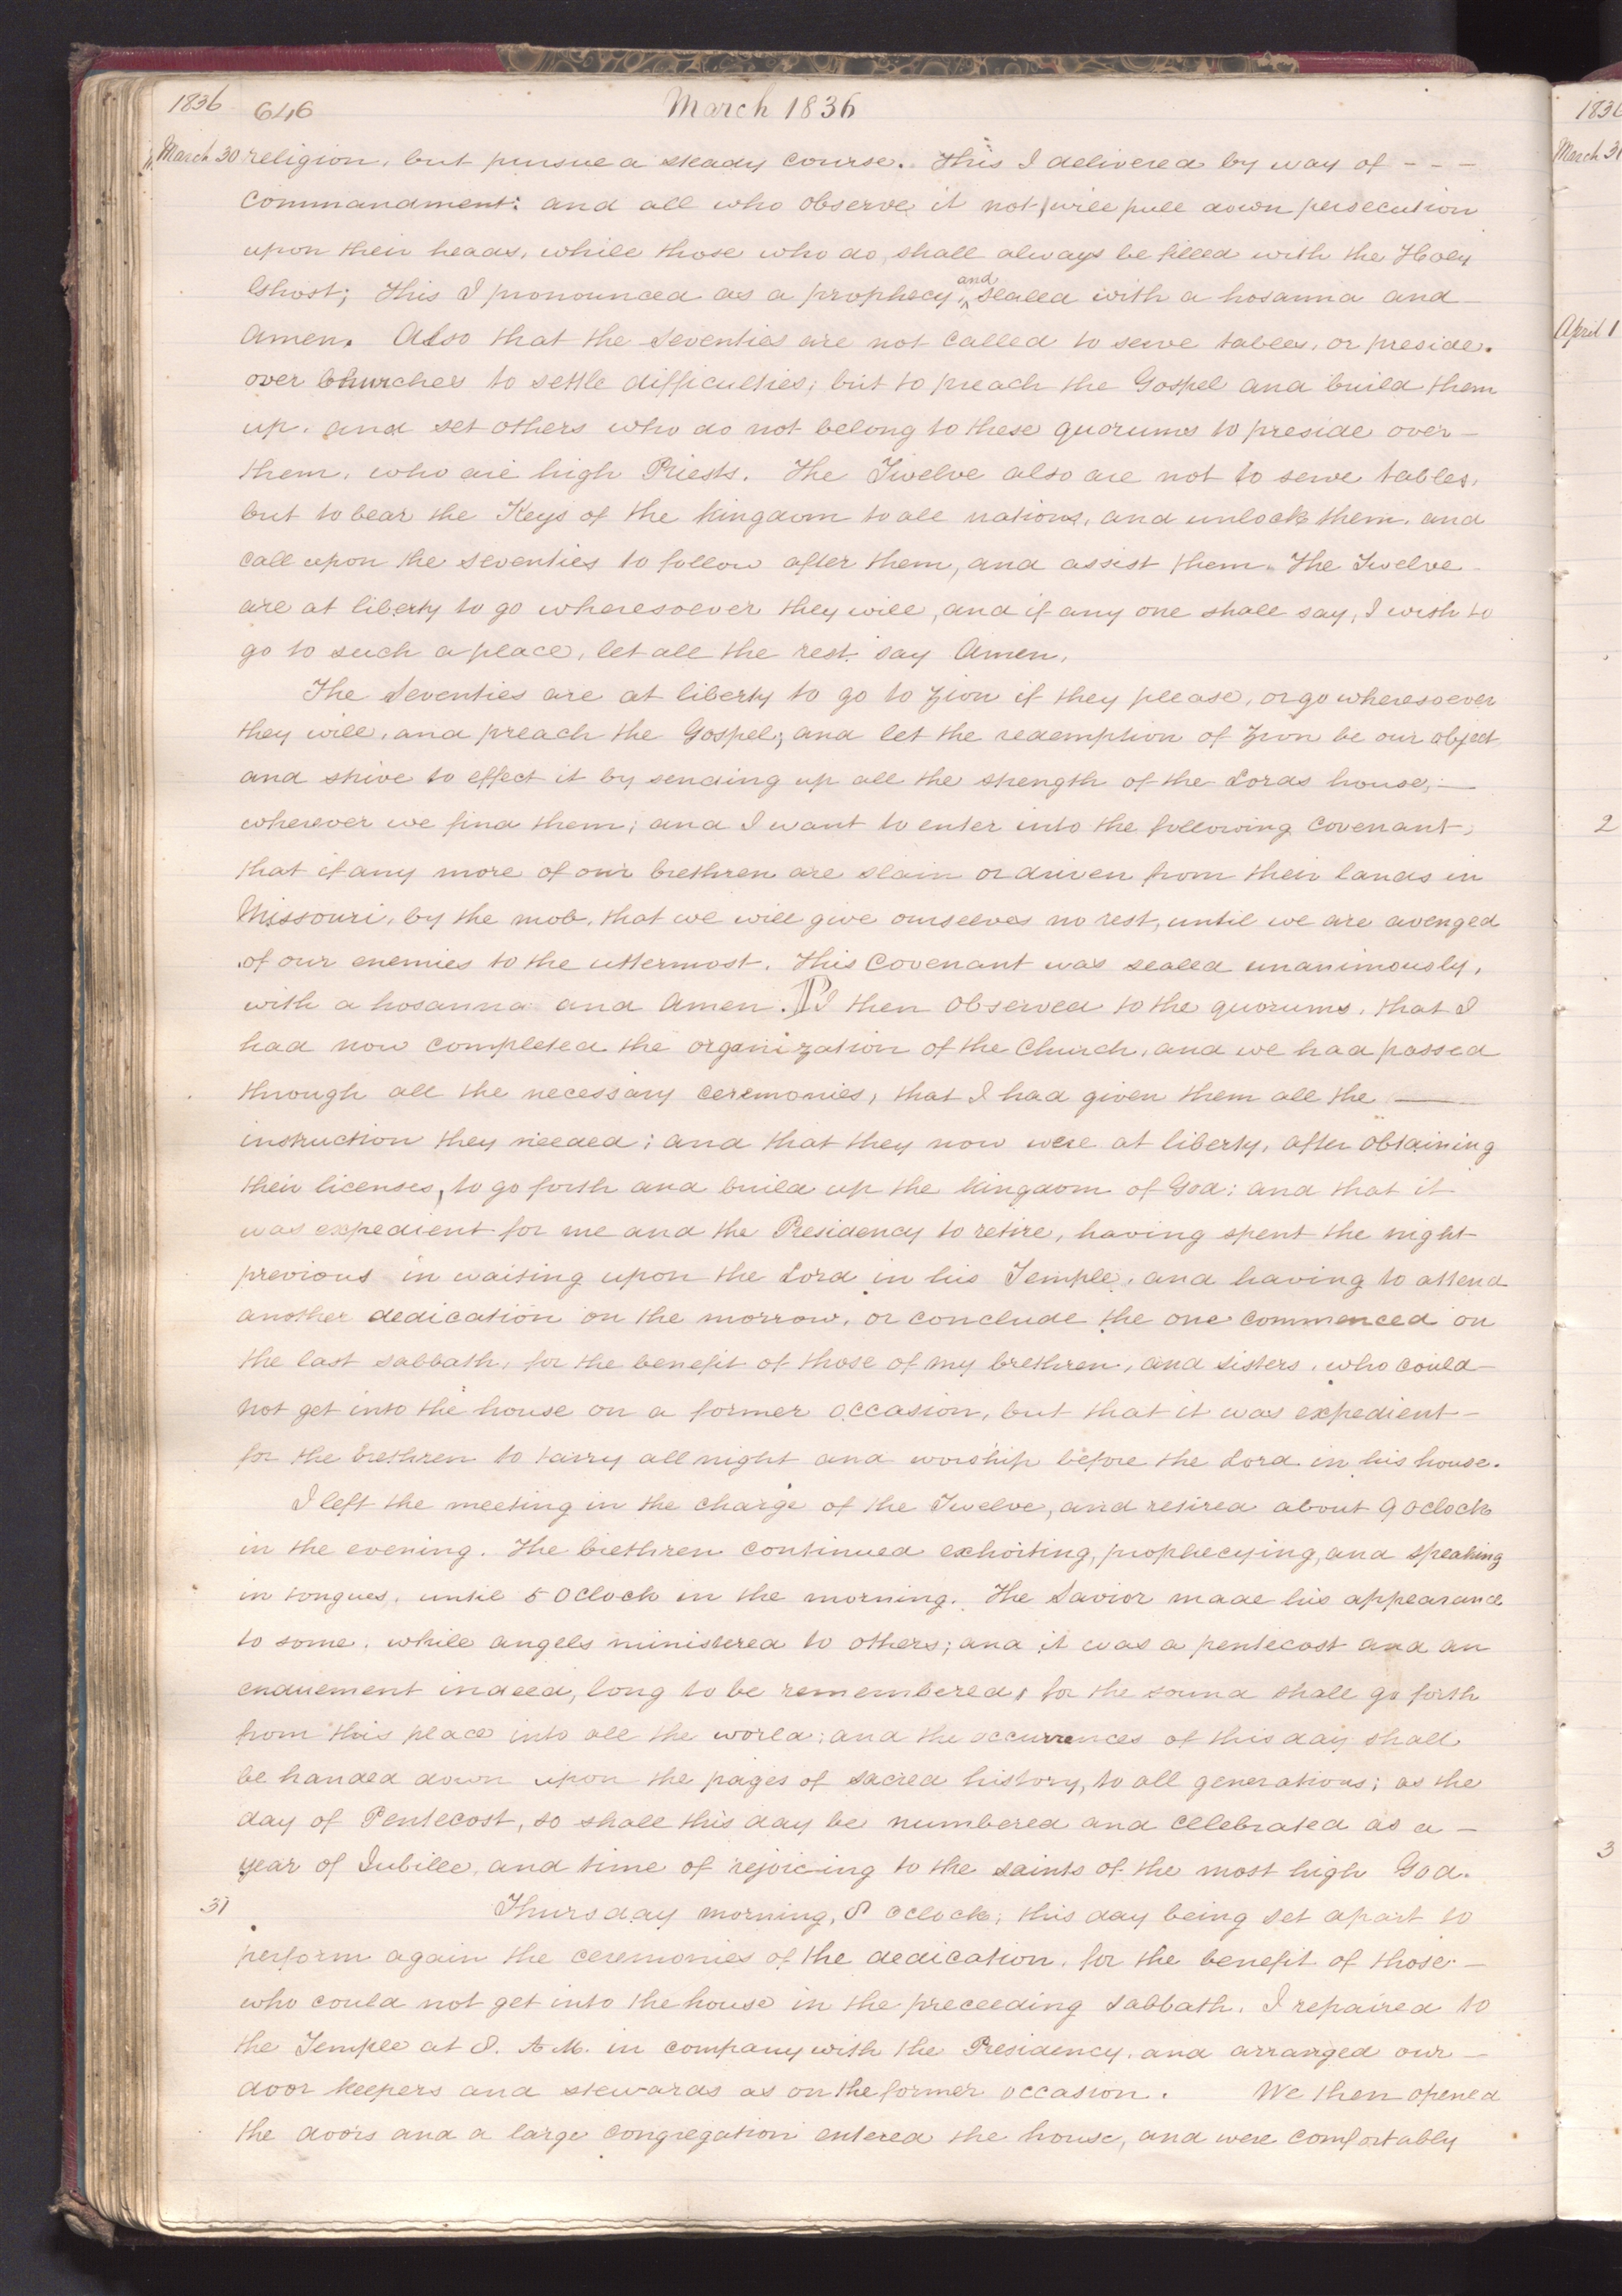 1836 646 March 1836
March 30 religion, but pursue a steady course. This I delivered by way of - - -
commandment: and all who observe it not will pull down persecution
upon their heads, while those who do, shall always be filled with the Holy
Ghost; This I pronounced as a prophecy, and sealed with a hosanna and
Amen. Also that the Seventies are not called to serve tables, or preside.
over Churches to settle difficulties; but to preach the Gospel and build them
up, and set others who do not belong to these quorums to preside over -
them, who are high Priests. The Twelve also are not to serve tables,
but to bear the Keys of the kingdom to all nations, and unlock them, and
call upon the seventies to follow after them, and assist them. The Twelve
are at liberty to go wheresoever they will, and if any one shall say, I wish to
go to such a place, let all the rest say Amen.
The Seventies are at liberty to go to Zion if they please, or go wheresoever
they will, and preach the Gospel; and let the redemption of Zion be our object,
and strive to effect it by sending up all the strength of the Lords house, —
wherever we find them; and I want to enter into the following covenant,
that if any more of our brethren are slain or driven from their lands in
Missouri, by the mob, that we will give ourselves no rest, until we are avenged
of our enemies to the uttermost. This Covenant was sealed unanimously,
with a hosanna and Amen. P I then observed to the quorums, that I
had now completed the organization of the Church, and we had passed
through all the necessary ceremonies, that I had given them all the —
instruction they needed; and that they now were at liberty, after obtaining
their licenses, to go forth and build up the kingdom of God; and that it
was expedient for me and the Presidency to retire, having spent the night
previous in waiting upon the Lord in his Temple, and having to attend
another dedication on the morrow, or conclude the one commenced on
the last sabbath, for the benefit of those of my brethren, and sisters, who could —
not get into the house on a former occasion, but that it was expedient -
for the brethren to tarry all night and worship before the Lord in his house.
I left the meeting in the charge of the Twelve, and retired about 9 oclock
in the evening. The brethren continued exhorting, prophecying, and speaking
in tongues, until 5 oclock in the morning. The Savior made his appearance
to some, while angels ministered to others; and it was a pentecost and an
enduement indeed, long to be remembered, for the sound shall go forth
from this place into all the world; and the occurrences of this day shall
be handed down upon the pages of sacred history, to all generations; as the
day of Pentecost, so shall this day be numbered and celebrated as a -
year of Jubilee, and time of rejoicing to the saints of the most high God.
31 Thursday morning, 8 oclock; this day being set apart to
perform again the ceremonies of the dedication, for the benefit of those -
who could not get into the house in the preceeding sabbath. I repaired to
the Temple at 8. A.M. in company with the Presidency, and arranged our -
door keepers and stewards as on the former occasion. We then opened
the doors and a large congregation entered the house, and were comfortably
1836
March 31
April 1
2
3